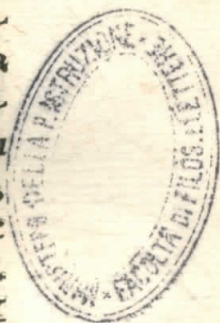 MINISTERO DELLA P. ISTRUZIONE
FACOLTÀ DI FILOS. E LETTERE